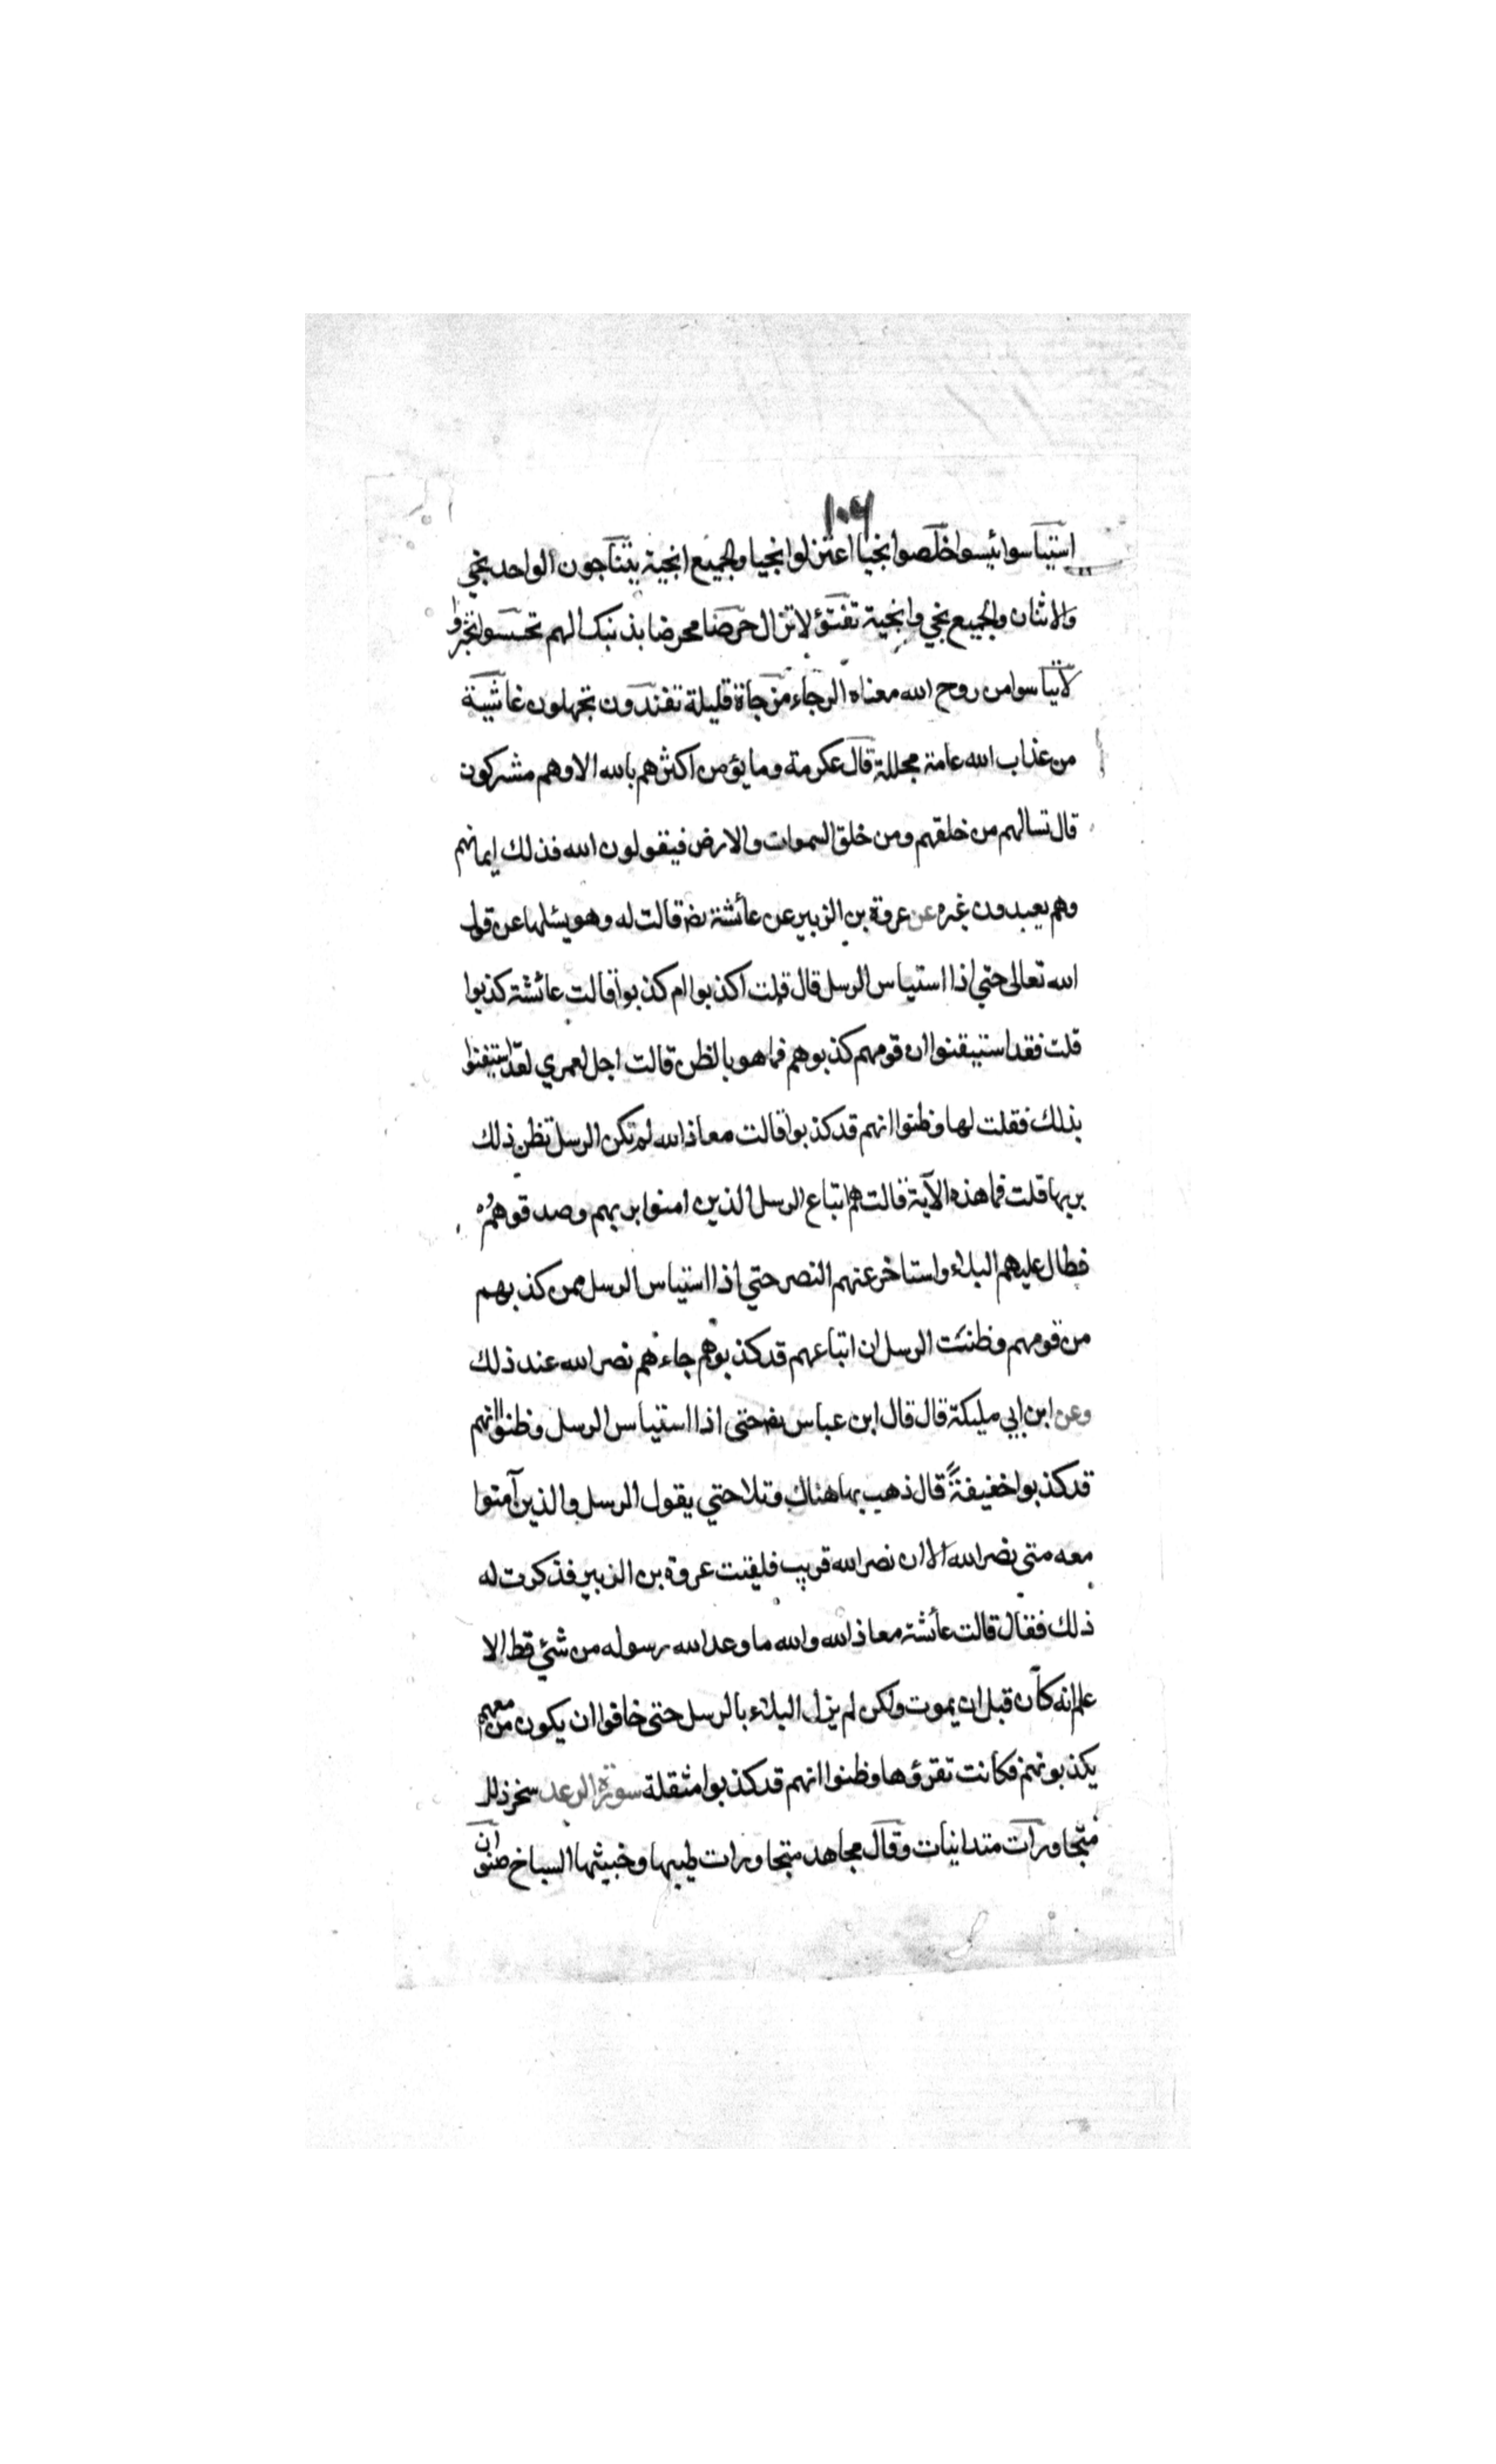 ١٠٦
استياسوا ئيسوا خلصوا نجيا اعتزلوا نجيا والجميع انجية يتناجون الواحد نجي
والاثنان والجميع نجي وانجية تفتؤ لا تزال حرضا محرضا يذنبك الهم تحسسوا تخبروا
لا تياسوا من روح الله معناه الرجاء مزجاة قليلة تفندون تجهلون غاشية
من عذاب الله عامة مجللة قال عكرمة وما يؤمن اكثرهم بالله الا وهم مشركون
قال تسالهم من خلقهم ومن خلق السموات والارض فيقولون الله فذلك ايمانهم
وهم يعبدون غيره عن عروة بن الزبير عن عائشة رضـ قالت له وهو يسئلها عن قول
الله تعالى حتي اذا استياس الرسل قال قلت اكذبوا ام كذبوا قالت عائشة كذبوا
قلت فقد استيقنوا ان قومهم كذبوهم فما هو بالظن قالت اجل لعمري لقد استيقنوا
بذلك فقلت لها وظنوا انهم قد كذبوا قالت معاذ الله لم تكن الرسل تظن ذلك
بربها قلت فما هذه الآية قالت هم اتباع الرسل الذين امنوا بربهم وصدقوهم
فطال عليهم البلاء واستاخر عنهم النصر حتي اذا استياس الرسل ممن كذبهم
من قومهم وظنت الرسل ان اتباعهم قد كذبوهم جاءهم نصر الله عند ذلك
وعن ابن ابي مليكة قال قال ابن عباس رضـ حتى اذا استياس الرسل وظنوا انهم
قد كذبوا خفيفةً قال ذهب بها هناك وتلا حتي يقول الرسل والذين آمنوا
معه متى نصر الله الا ان نصر الله قريب فلقيت عروة بن الزبير فذكرت له
ذلك فقال قالت عائشة معاذ الله والله ما وعد الله رسوله من شئ قط الا
علم انه كائن قبل ان يموت ولكن لم يزل البلاء بالرسل حتى خافوا ان يكون من معهم
يكذبونهم فكانت تقرؤها وظنوا انهم قد كذبوا مثقلة سورة الرعد سخر ذلل
متجاورات متدانيات وقال مجاهد متجاورات طيبها وخبيثها السباخ صنوان